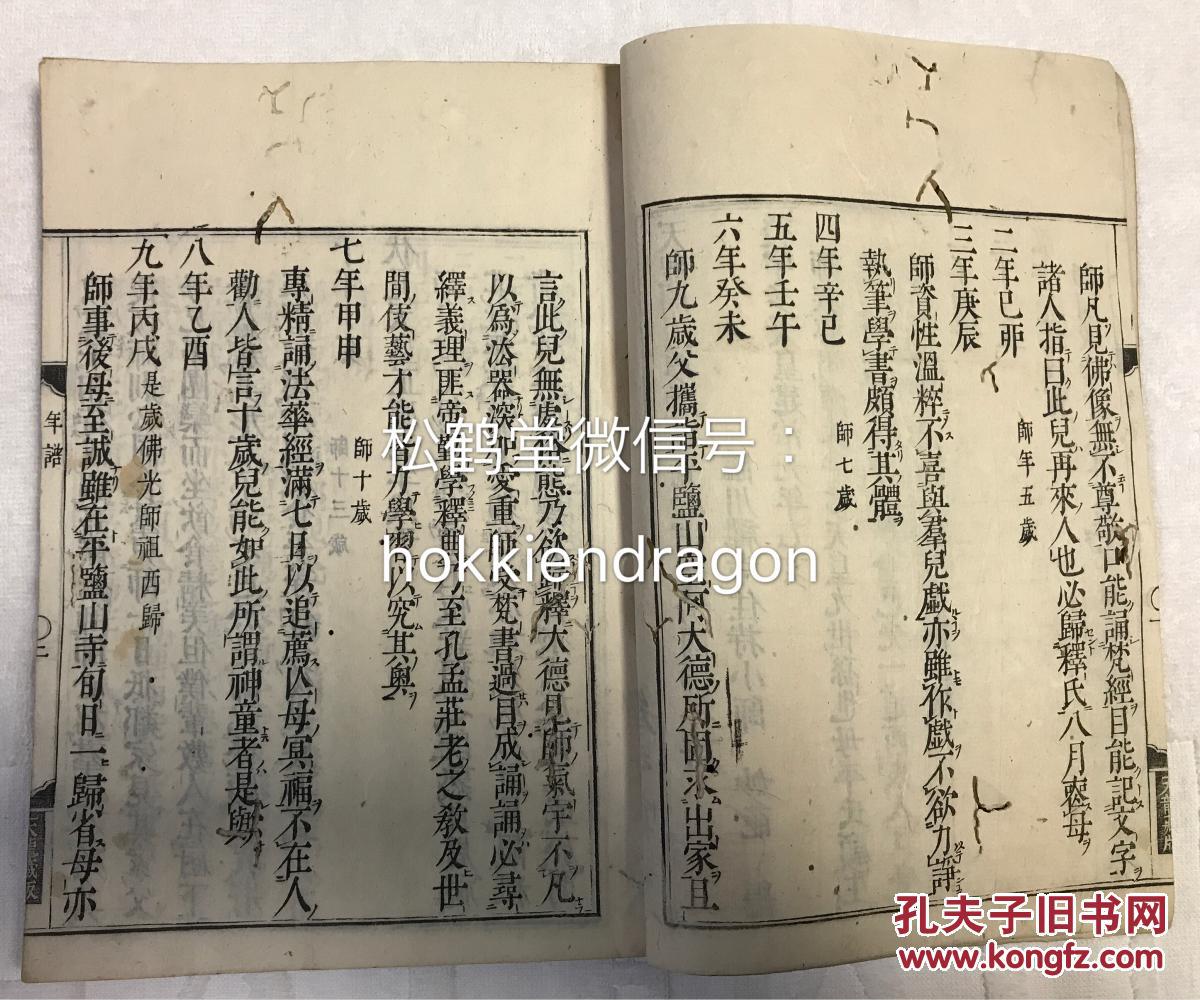 師凡見佛像無不尊敬口能誦梵經目能記文字
諸人指曰此兒再來人也必歸釋氏八月喪母
二年己卯 師年五歲
三年庚辰
師資性溫粹不喜與羣兒戲亦雖作戲不欲力諍
執筆學書頗得其體
四年辛巳 師七歲
五年壬午
六年癸未
師九歲父攜詣平鹽山 大德所 求出家且
言此兒無處 態乃欲歸釋大德見師氣宇不凡
以爲法器深 愛重 梵書過目成誦誦必尋
繹義理匪啻 學釋典乃至孔孟莊老之教及世
間伎藝才能 力學習以究其奧
七年甲申 師十歲
專精誦法華經滿七日以追薦亾母冥福不在人
勸人皆言十歲兒能如此所謂神童者是歟
八年乙酉
九年丙戌是歲佛光師祖西歸
師事後母至誠雖在平鹽山寺旬日一歸省母亦
年譜
〇二
〇一
師十三歲
松鹤堂微信号:
hokkiendragon
孔夫子旧书网
www.kongfz.com